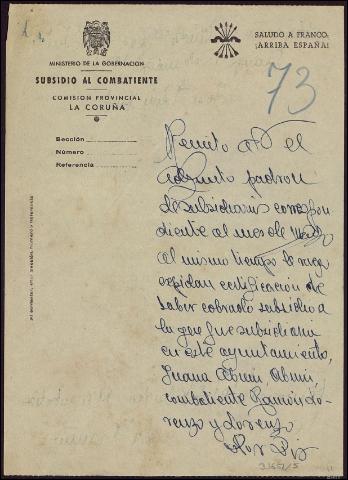 MINISTERIO DE LA GOBERNACION
SUBSIDIO AL COMBATIENTE
COMISION PROVINCIAL
LA CORUÑA
SALUDO A FRANCO:
¡ARRIBA ESPAÑA!
73
Sección
Número
Referencia
Remito a V el
adjunto padron
de subsidiarios correspon
diente al mes de
al mismo tiempo le ruego
expidan certificacion de
haber cobrado subsidio a
la que fue subsidiaria
en este ayuntamiento,
Juana
combatiente Ramon Lo-
renzo y Lorenzo